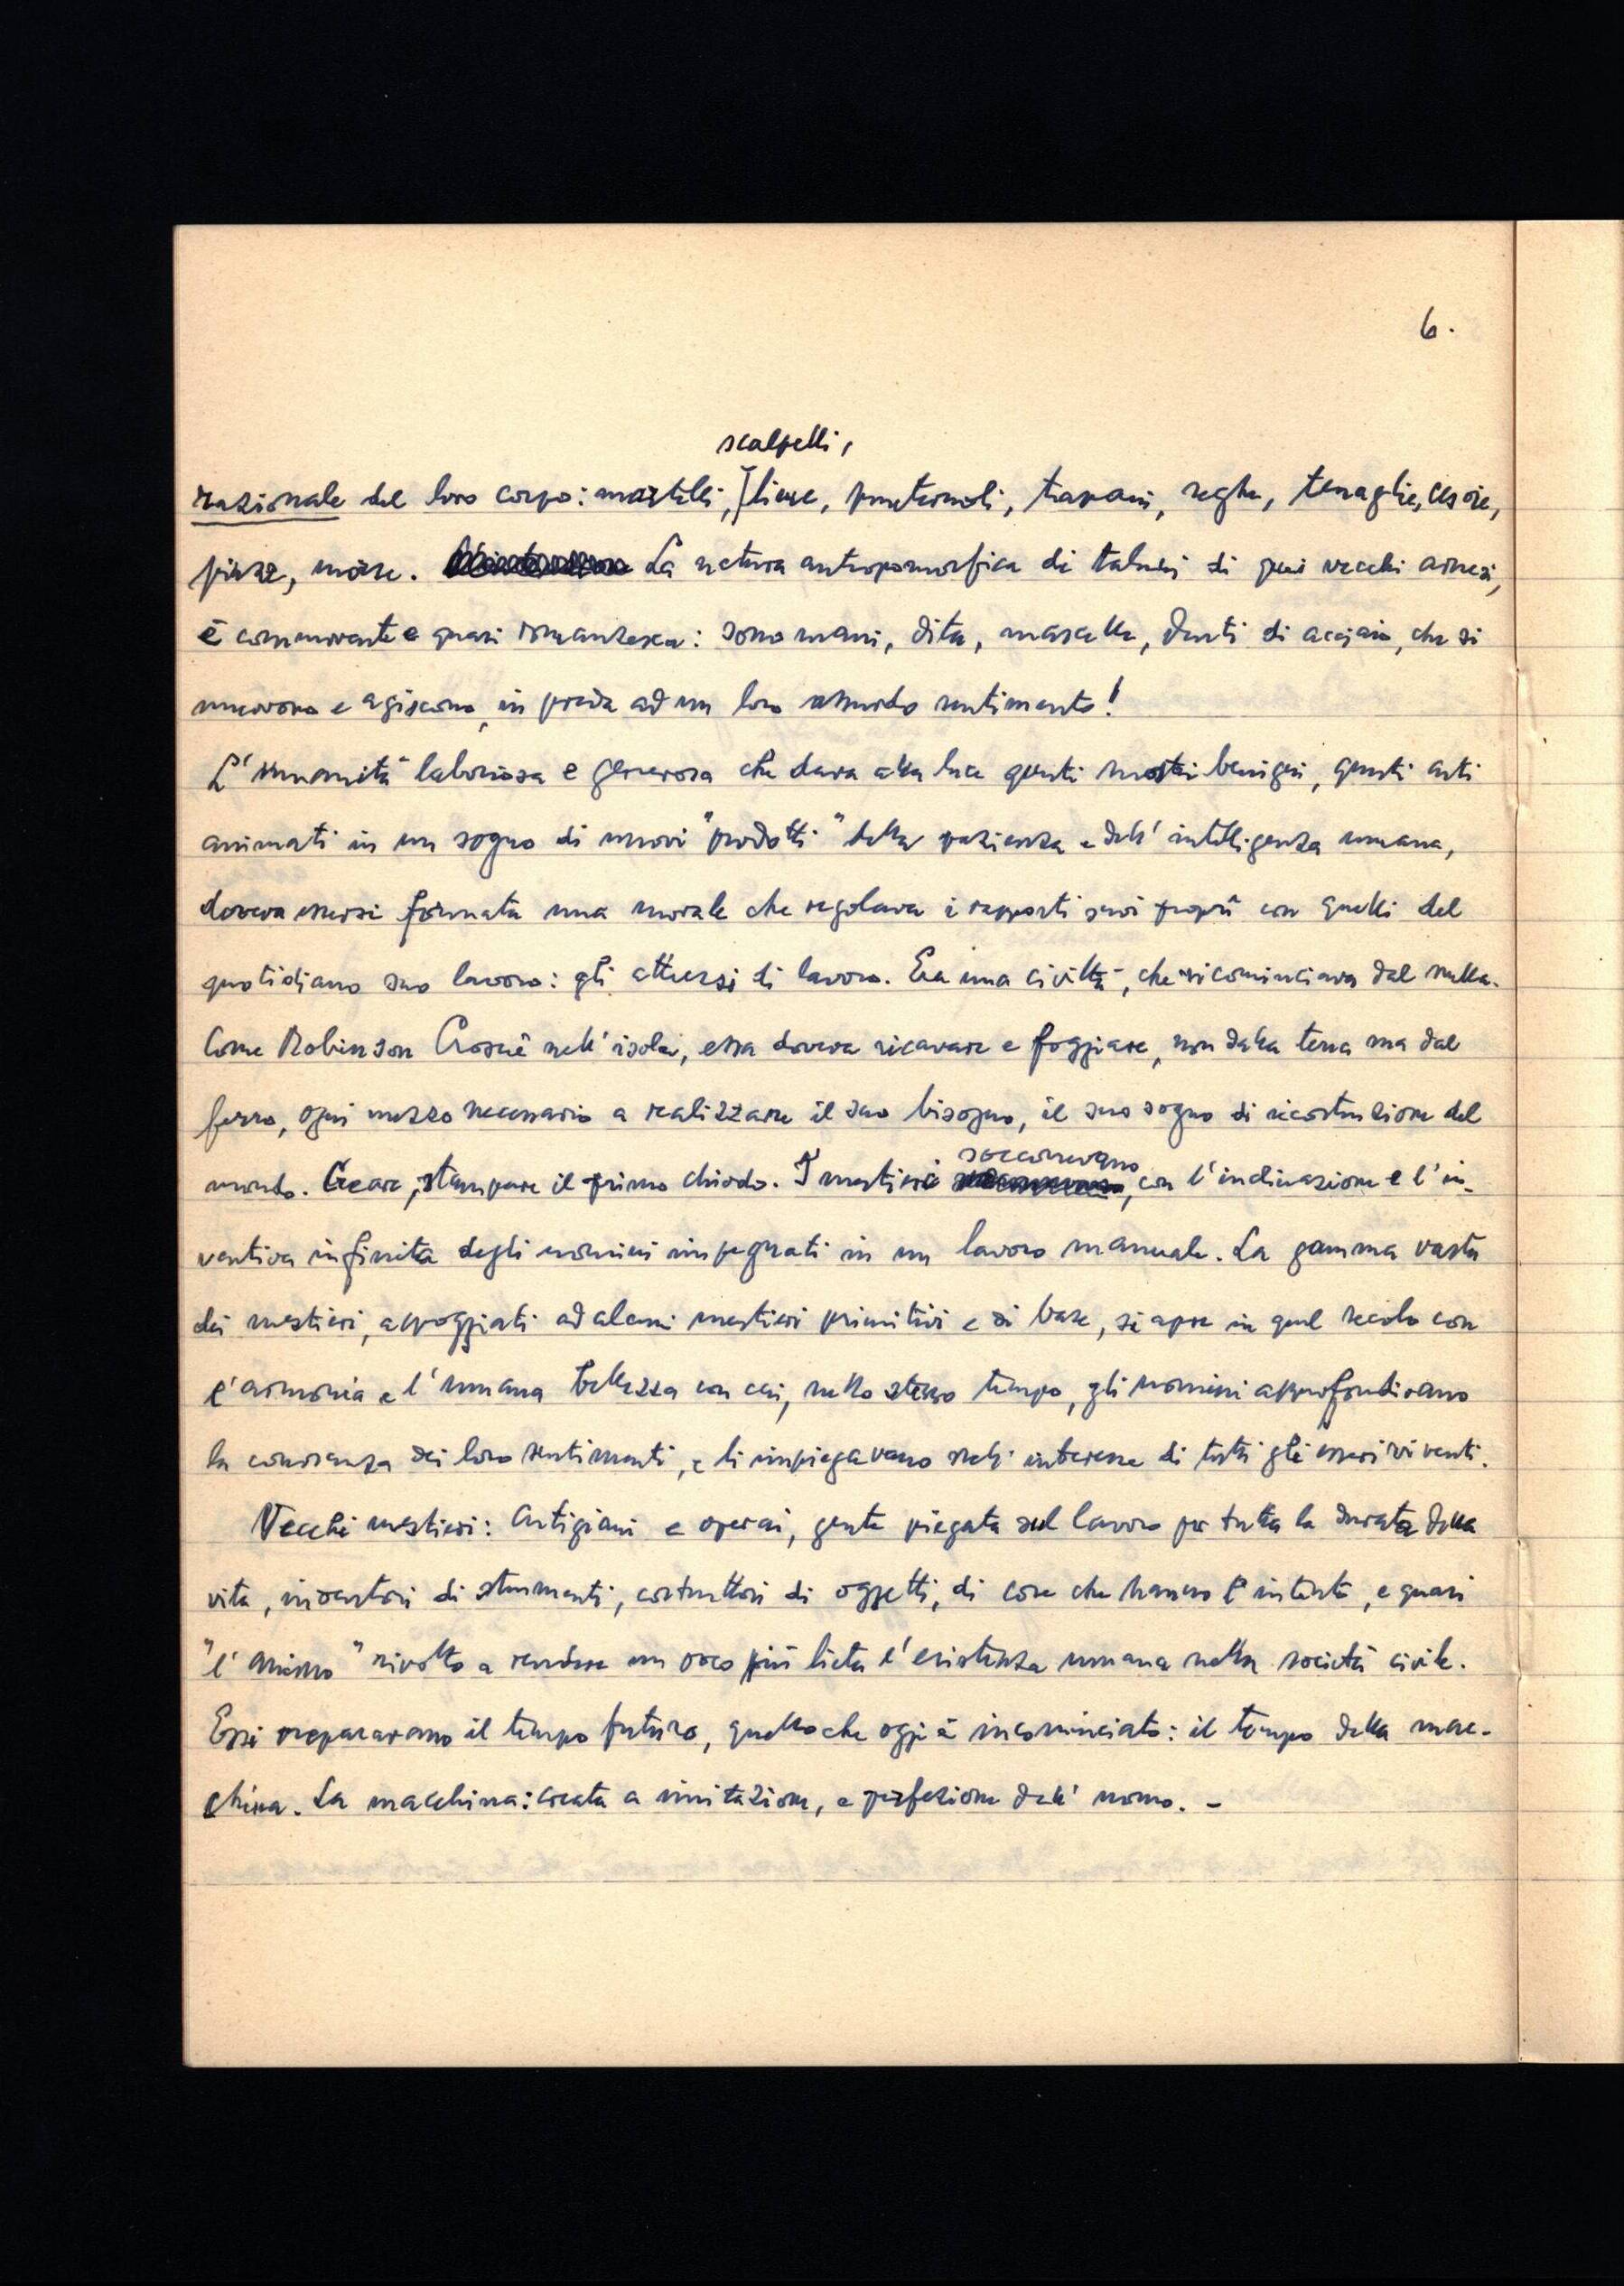 6.
scalpelli,
razionale del loro corpo: martelli, lime, punteruoli, trapani, seghe, tenaglie, cesoie,
pinze, morse. La natura antropomorfica di taluni di quei vecchi arnesi,
è commovente e quasi romanzesca: sono mani, dita, mascelle, denti di acciaio, che si
muovono e agiscono, in preda ad un loro assurdo sentimento!
L'umanità laboriosa e generosa che dava alla luce questi mostri benigni, questi arti
animati in un sogno di nuovi "prodotti" della pazienza e dell'intelligenza umana,
doveva essersi formata una morale che regolava i rapporti suoi proprî con quelli del
quotidiano suo lavoro: gli attrezzi di lavoro. Era una civiltà, che ricominciava dal nulla.
Come Robinson Crosuè nell'isola, essa doveva ricavare e foggiare, non dalla terra ma dal
ferro, ogni mezzo necessario a realizzare il suo bisogno, il suo sogno di ricostruzione del
mondo. Creare, stampare il primo chiodo. I mestieri soccorrevano, con l'inclinazione e l'in-
ventiva infinita degli uomini impegnati in un lavoro manuale. La gamma vasta
dei mestieri, appoggiati ad alcuni mestieri primitivi e di base, si apre in quel secolo con
l'armonia e l'umana bellezza con cui, nello stesso tempo, gli uomini approfondivano
la conoscenza dei loro sentimenti, e li impiegavano nell'interesse di tutti gli esseri viventi.
Vecchi mestieri: artigiani e operai, gente piegata sul lavoro per tutta la durata della
vita, inventori di strumenti, costruttori di oggetti, di cose che hanno l'intento, e quasi
"l'animo" rivolto a rendere un poco più lieta l'esistenza umana nella società civile.
Essi prepararono il tempo futuro, quello che oggi è incominciato: il tempo della mac-
china. La macchina: creata a imitazione, e perfezione dell'uomo. -